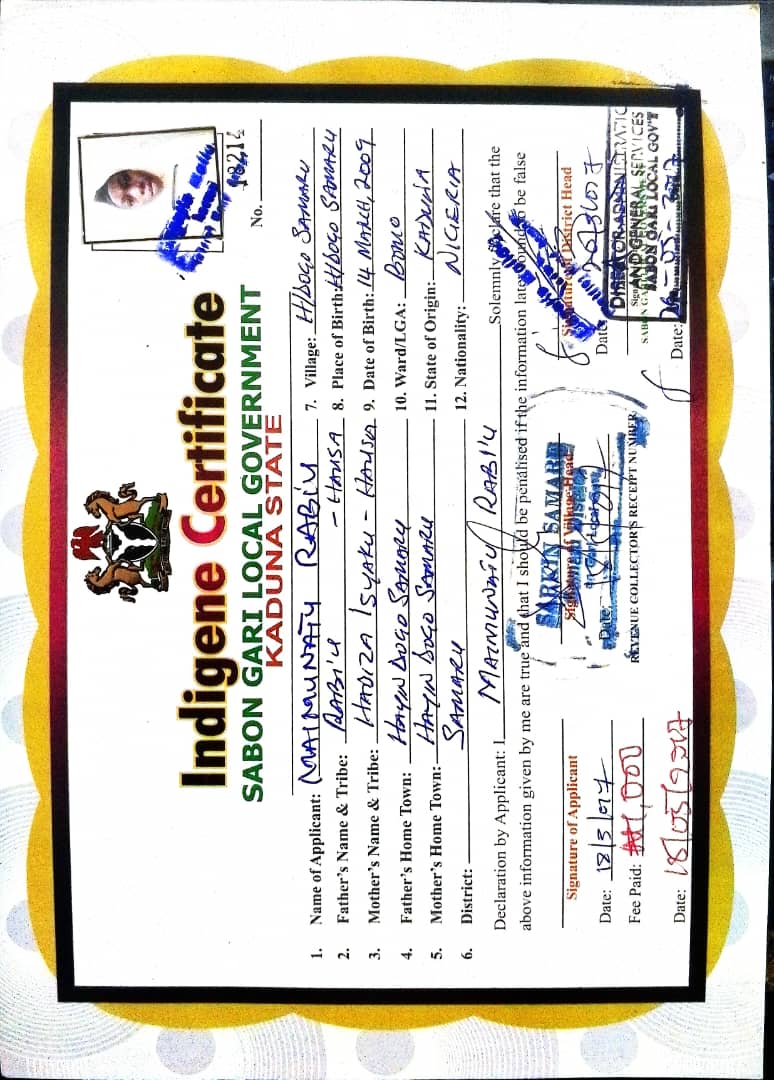 18214
No.
Indigene Certificate
SABON GARI LOCAL GOVERNMENT
KADUNA STATE
1. Name of Applicant: MAIMUNATU RABIU
2. Father's Name & Tribe: RABI'U - HAUSA
3. Mother's Name & Tribe: HADIZA ISYAKU - HAUSA
4. Father's Home Town: HAYIN DOGO SAMARU
5. Mother's Home Town: HAYIN DOGO SAMARU
6. District: SAMARU
7. Village: H/DOGO SAMARU
8. Place of Birth: H/DOGO SAMARU
9. Date of Birth: 14 MARCH, 2009
10. Ward/LGA: BOMO
11. State of Origin: KADUNA
12. Nationality: NIGERIA
Declaration by Applicant: I MAIMUNATU RABI'U Solemnly declare that the
above information given by me are true and that I should be penalised if the information later found to be false
Signature of Applicant
Date: 18/3/017
Fee Paid: ₦1,000
Date: 18/03/2017
SARKIN SAMARU
Signature of Village Head
Date:
REVENUE COLLECTOR'S RECEIPT NUMBER
Signature of District Head
Date:
DIRECTOR ADMINISTRATION
AND GENERAL SERVICES
SABON GARI LOCAL GOV'T
Date: